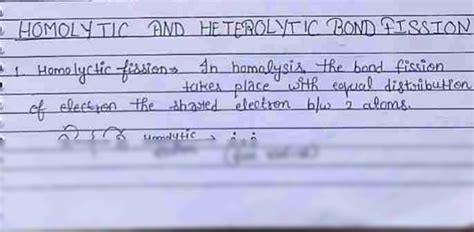 HOMOLYTIC AND HETEROLYTIC BOND FISSION
1. Homolyctic fission→ In homolysis, the bond fission
takes place with equal distribution
of electron the shared electron b/w 2 atoms.
Homolytic →